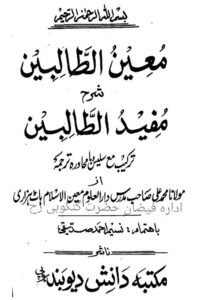 بسم الله الرحمن الرحیم
معین الطالبین
شرح
مفید الطالبین
ترکیب مع سلیس بامحاورہ ترجمہ
از
مولانا محمد علی صاحب مدرس دارالعلوم معین الاسلام ہاٹہزاری
ادارہ فیضان حضرت گنگوہی رح
باہتمام: نسیم احمد صدیقی
ناشر
مکتبہ دانش دیوبند